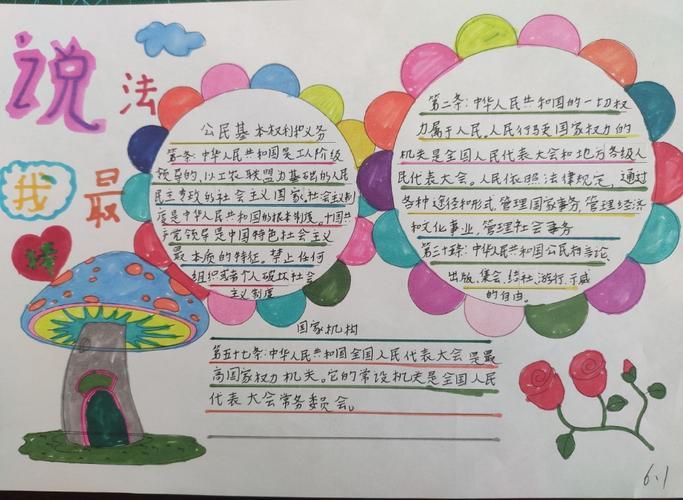 说法
我最棒
公民基本权利和义务
第一条:中华人民共和国是工人阶级
领导的,以工农联盟为基础的人民
民主专政的社会主义国家,社会主义制
度是中华人民共和国的根本制度。中国共
产党领导是中国特色社会主义
最本质的特征。禁止任何
组织或者个人破坏社会
主义制度
第二条:中华人民共和国的一切权
力属于人民。人民行使国家权力的
机关是全国人民代表大会和地方各级人
民代表大会。人民依照法律规定,通过
各种途径和形式,管理国家事务,管理经济
和文化事业,管理社会事务
第三十五条:中华人民共和国公民有言论、
出版、集会、结社、游行、示威
的自由。
国家机构
第五十七条:中华人民共和国全国人民代表大会是最
高国家权力机关。它的常设机关是全国人民
代表大会常务委员会。
6.1